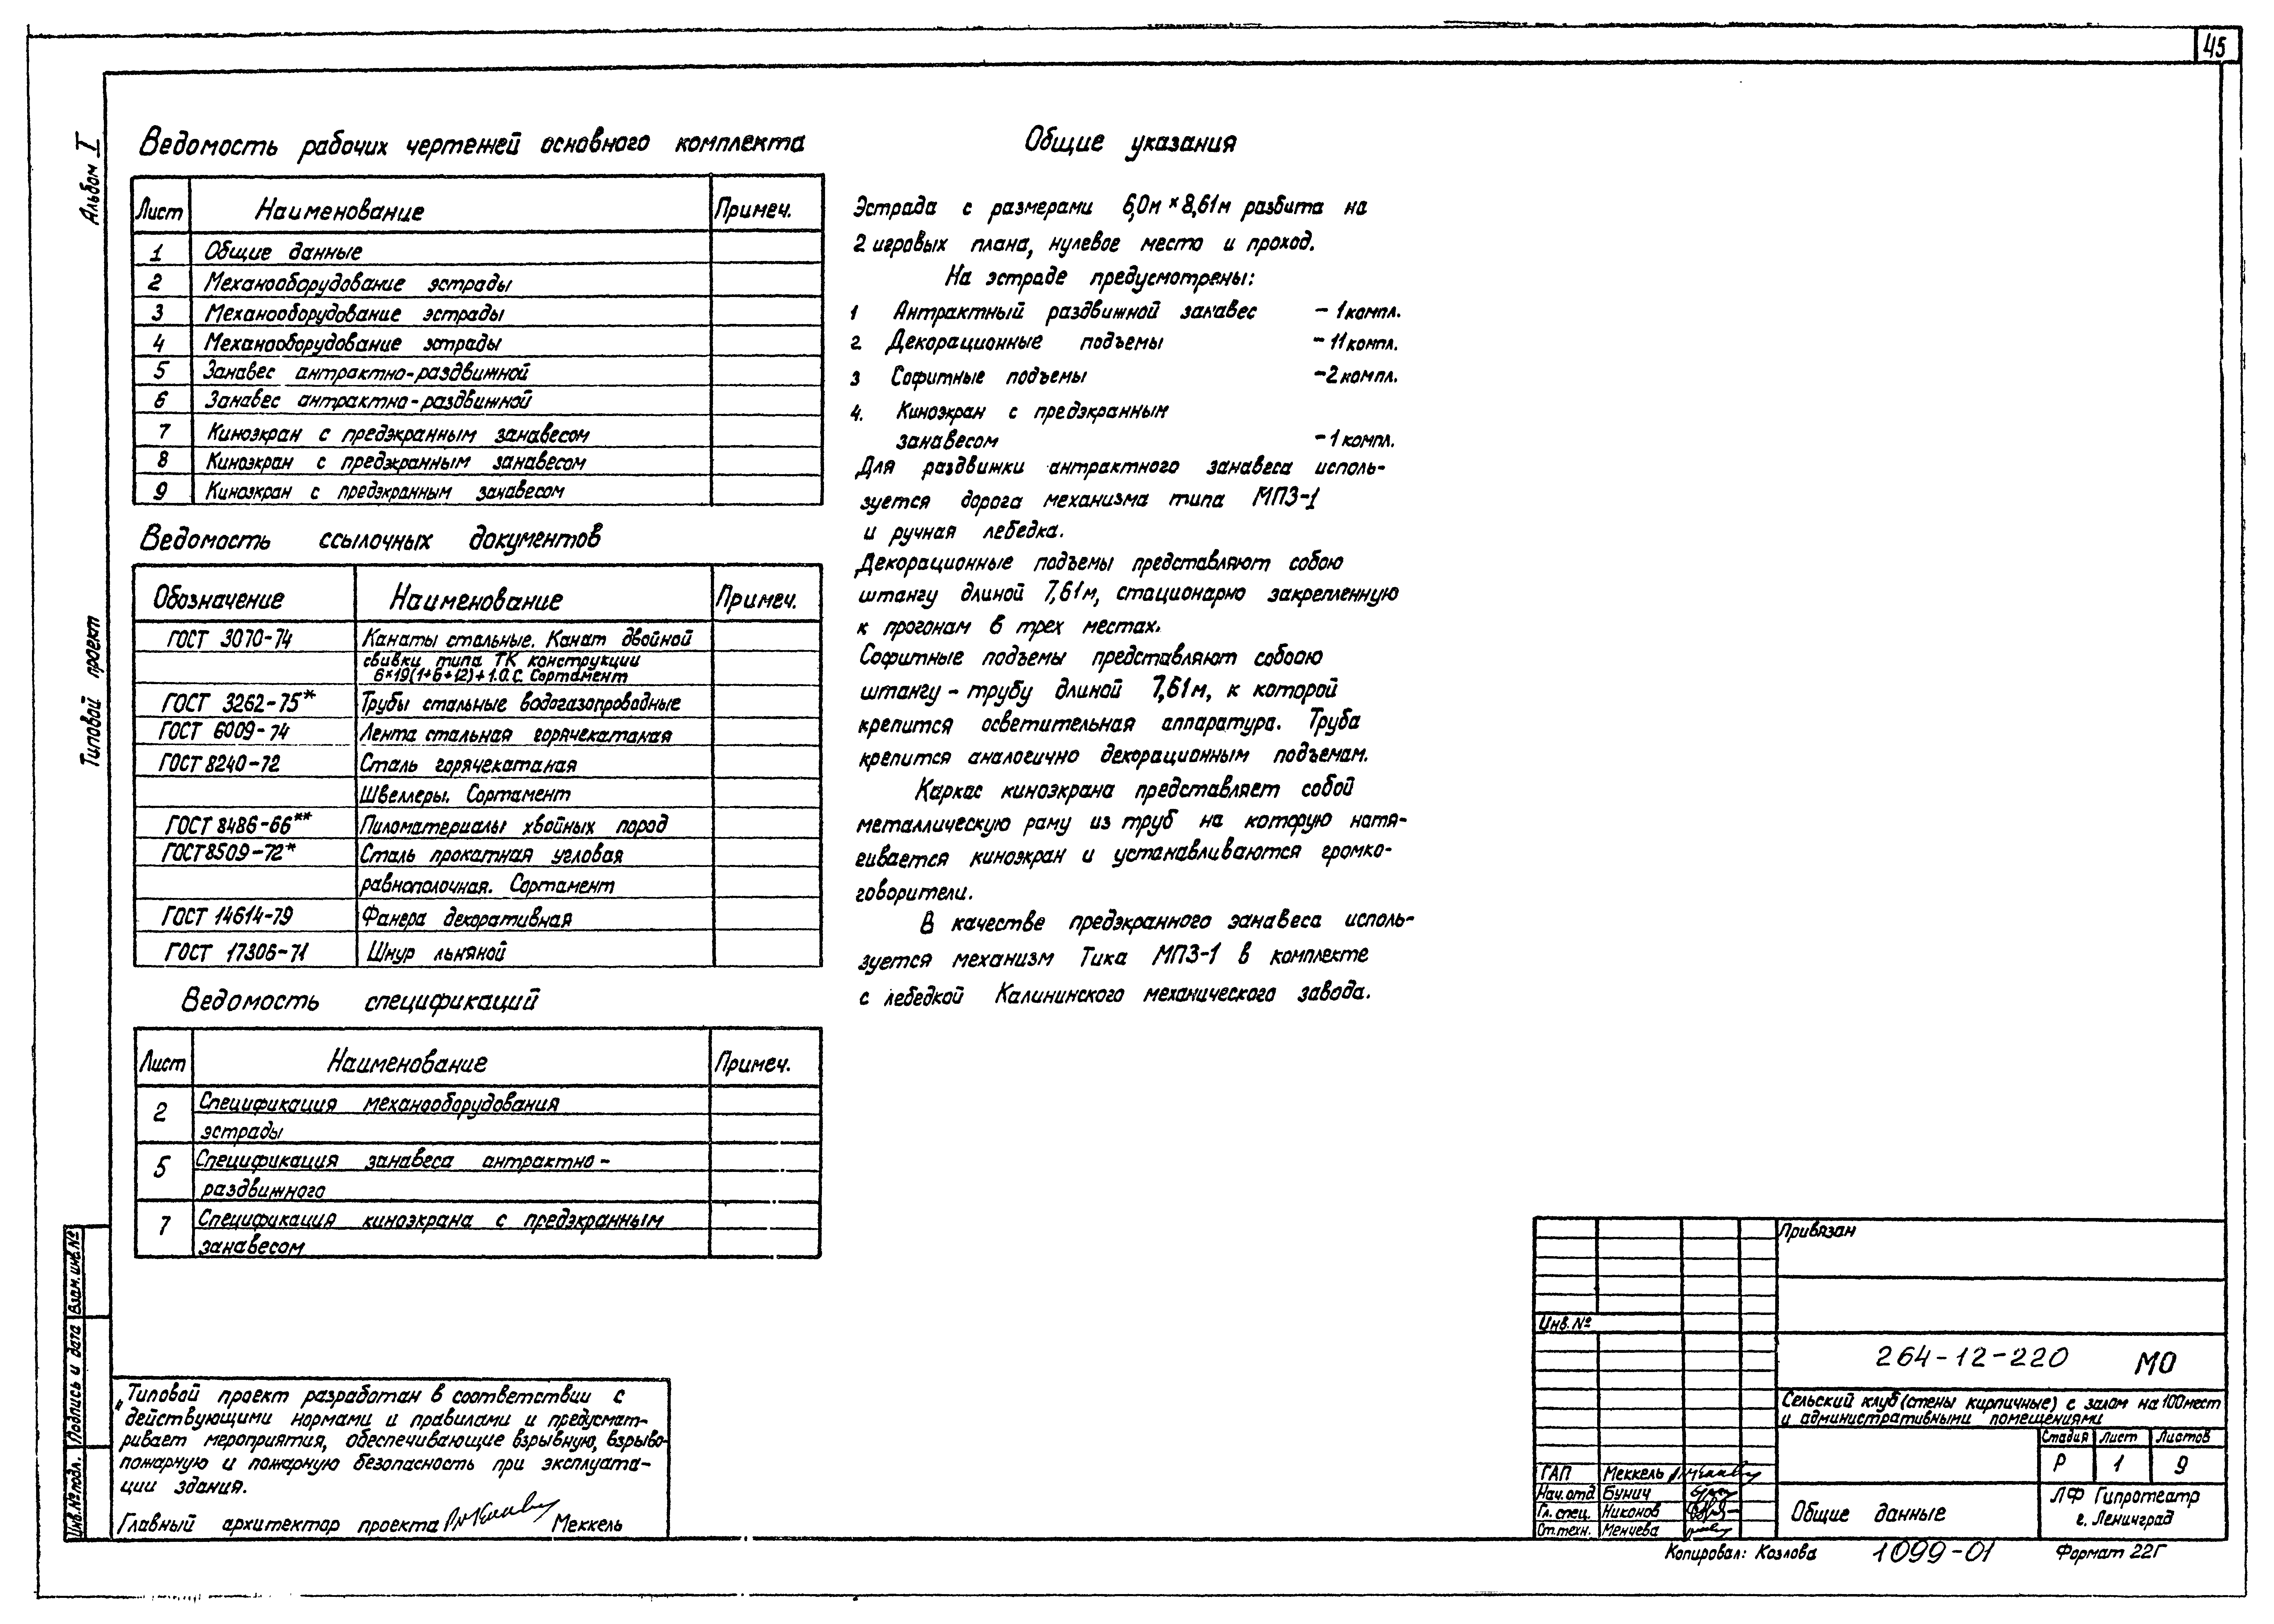 45
Альбом I
Типовой проект
Ведомость рабочих чертежей основного комплекта
Лист Наименование Примеч.
1 Общие данные
2 Механооборудование эстрады
3 Механооборудование эстрады
4 Механооборудование эстрады
5 Занавес антрактно-раздвижной
6 Занавес антрактно-раздвижной
7 Киноэкран с предэкранным занавесом
8 Киноэкран с предэкранным занавесом
9 Киноэкран с предэкранным занавесом
Ведомость ссылочных документов
Обозначение Наименование Примеч.
ГОСТ 3070-74 Канаты стальные. Канат двойной
свивки типа ТК конструкции
6×19(1+6+12)+1.О.С. Сортамент
ГОСТ 3262-75* Трубы стальные водогазопроводные
ГОСТ 6009-74 Лента стальная горячекатаная
ГОСТ 8240-72 Сталь горячекатаная
Швеллеры. Сортамент
ГОСТ 8486-66** Пиломатериалы хвойных пород
ГОСТ 8509-72* Сталь прокатная угловая
равнополочная. Сортамент
ГОСТ 14614-79 Фанера декоративная
ГОСТ 17306-71 Шнур льняной
Ведомость спецификаций
Лист Наименование Примеч.
2 Спецификация механооборудования
эстрады
5 Спецификация занавеса антрактно-
раздвижного
7 Спецификация киноэкрана с предэкранным
занавесом
Общие указания
Эстрада с размерами 6,0м × 8,61м разбита на
2 игровых плана, нулевое место и проход.
На эстраде предусмотрены:
1 Антрактный раздвижной занавес - 1 компл.
2 Декорационные подъемы - 11 компл.
3 Софитные подъемы - 2 компл.
4. Киноэкран с предэкранным
занавесом - 1 компл.
Для раздвижки антрактного занавеса исполь-
зуется дорога механизма типа МПЗ-1
и ручная лебедка.
Декорационные подъемы представляют собою
штангу длиной 7,61м, стационарно закрепленную
к прогонам в трех местах.
Софитные подъемы представляют собоою
штангу - трубу длиной 7,61м, к которой
крепится осветительная аппаратура. Труба
крепится аналогично декорационным подъемам.
Каркас киноэкрана представляет собой
металлическую раму из труб на которую натя-
гивается киноэкран и устанавливаются громко-
говорители.
В качестве предэкранного занавеса исполь-
зуется механизм Тика МПЗ-1 в комплекте
с лебедкой Калининского механического завода.
„Типовой проект разработан в соответствии с
действующими нормами и правилами и предусмат-
ривает мероприятия, обеспечивающие взрывную, взрыво-
пожарную и пожарную безопасность при эксплуата-
ции здания.
Главный архитектор проекта Меккель
Взам. инв. №
Подпись и дата
Инв. № подл.
Привязан
Инв. №
264-12-220 МО
Сельский клуб (стены кирпичные) с залом на 100 мест
и административными помещениями
Стадия Лист Листов
Р 1 9
ГАП Меккель
Нач. отд Бунич
Гл. спец. Никонов
Ст. техн. Менчева
Общие данные
ЛФ Гипротеатр
г. Ленинград
Копировал: Козлова 1099-01 Формат 22Г